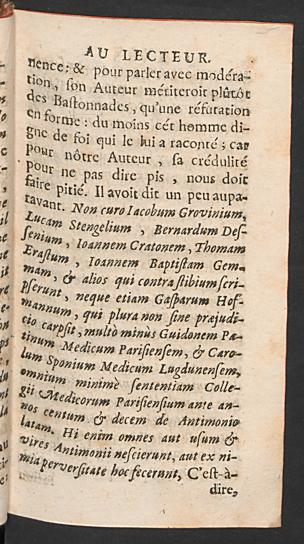 AU LECTEUR.
nence: & pour parler avec modéra-
tion, son Auteur mériteroit plûtôt
des Bastonnades, qu'une réfutation
en forme: du moins cét homme di-
gne de foi qui le lui a raconté; car
pour nôtre Auteur, sa crédulité
pour ne pas dire pis, nous doit
faire pitié. Il avoit dit un peu aupa-
ravant. Non curo Iacobum Grovinium,
Lucam Stengelium, Bernardum Des-
senium, Ioannem Cratonem, Thomam
Erastum, Ioannem Baptistam Gem-
mam, & alios qui contra stibium scri-
pserunt, neque etiam Gasparum Hof-
mannum, qui plura non sine præjudi-
cio carpsit, multò minùs Guidonem Pa-
tinum Medicum Parisiensem, & Caro-
lum Sponium Medicum Lugdunensem,
omnium minimè sententiam Colle-
gii Medicorum Parisiensium ante an-
nos centum & decem de Antimonio
latam. Hi enim omnes aut usum &
vires Antimonii nescierunt, aut ex ni-
mia perversitate hoc fecerunt, C'est-à-
dire,